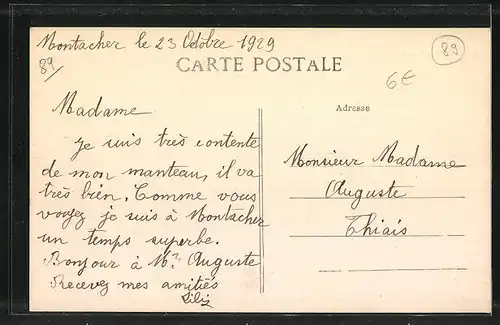 Montacher le 23 Octobre 1929
89
89/
CARTE POSTALE
6€
Madame
Je suis très contente
de mon manteau, il va
très bien. Comme vous
voyez je suis à Montacher
un temps superbe.
Bonjour à Mr Auguste
Recevez mes amitiés
Adresse
Monsieur Madame
Auguste
Thiais